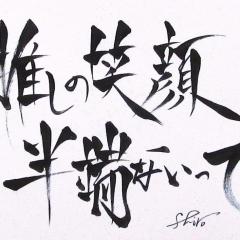 推しの笑顔
半端ないって
Shiro